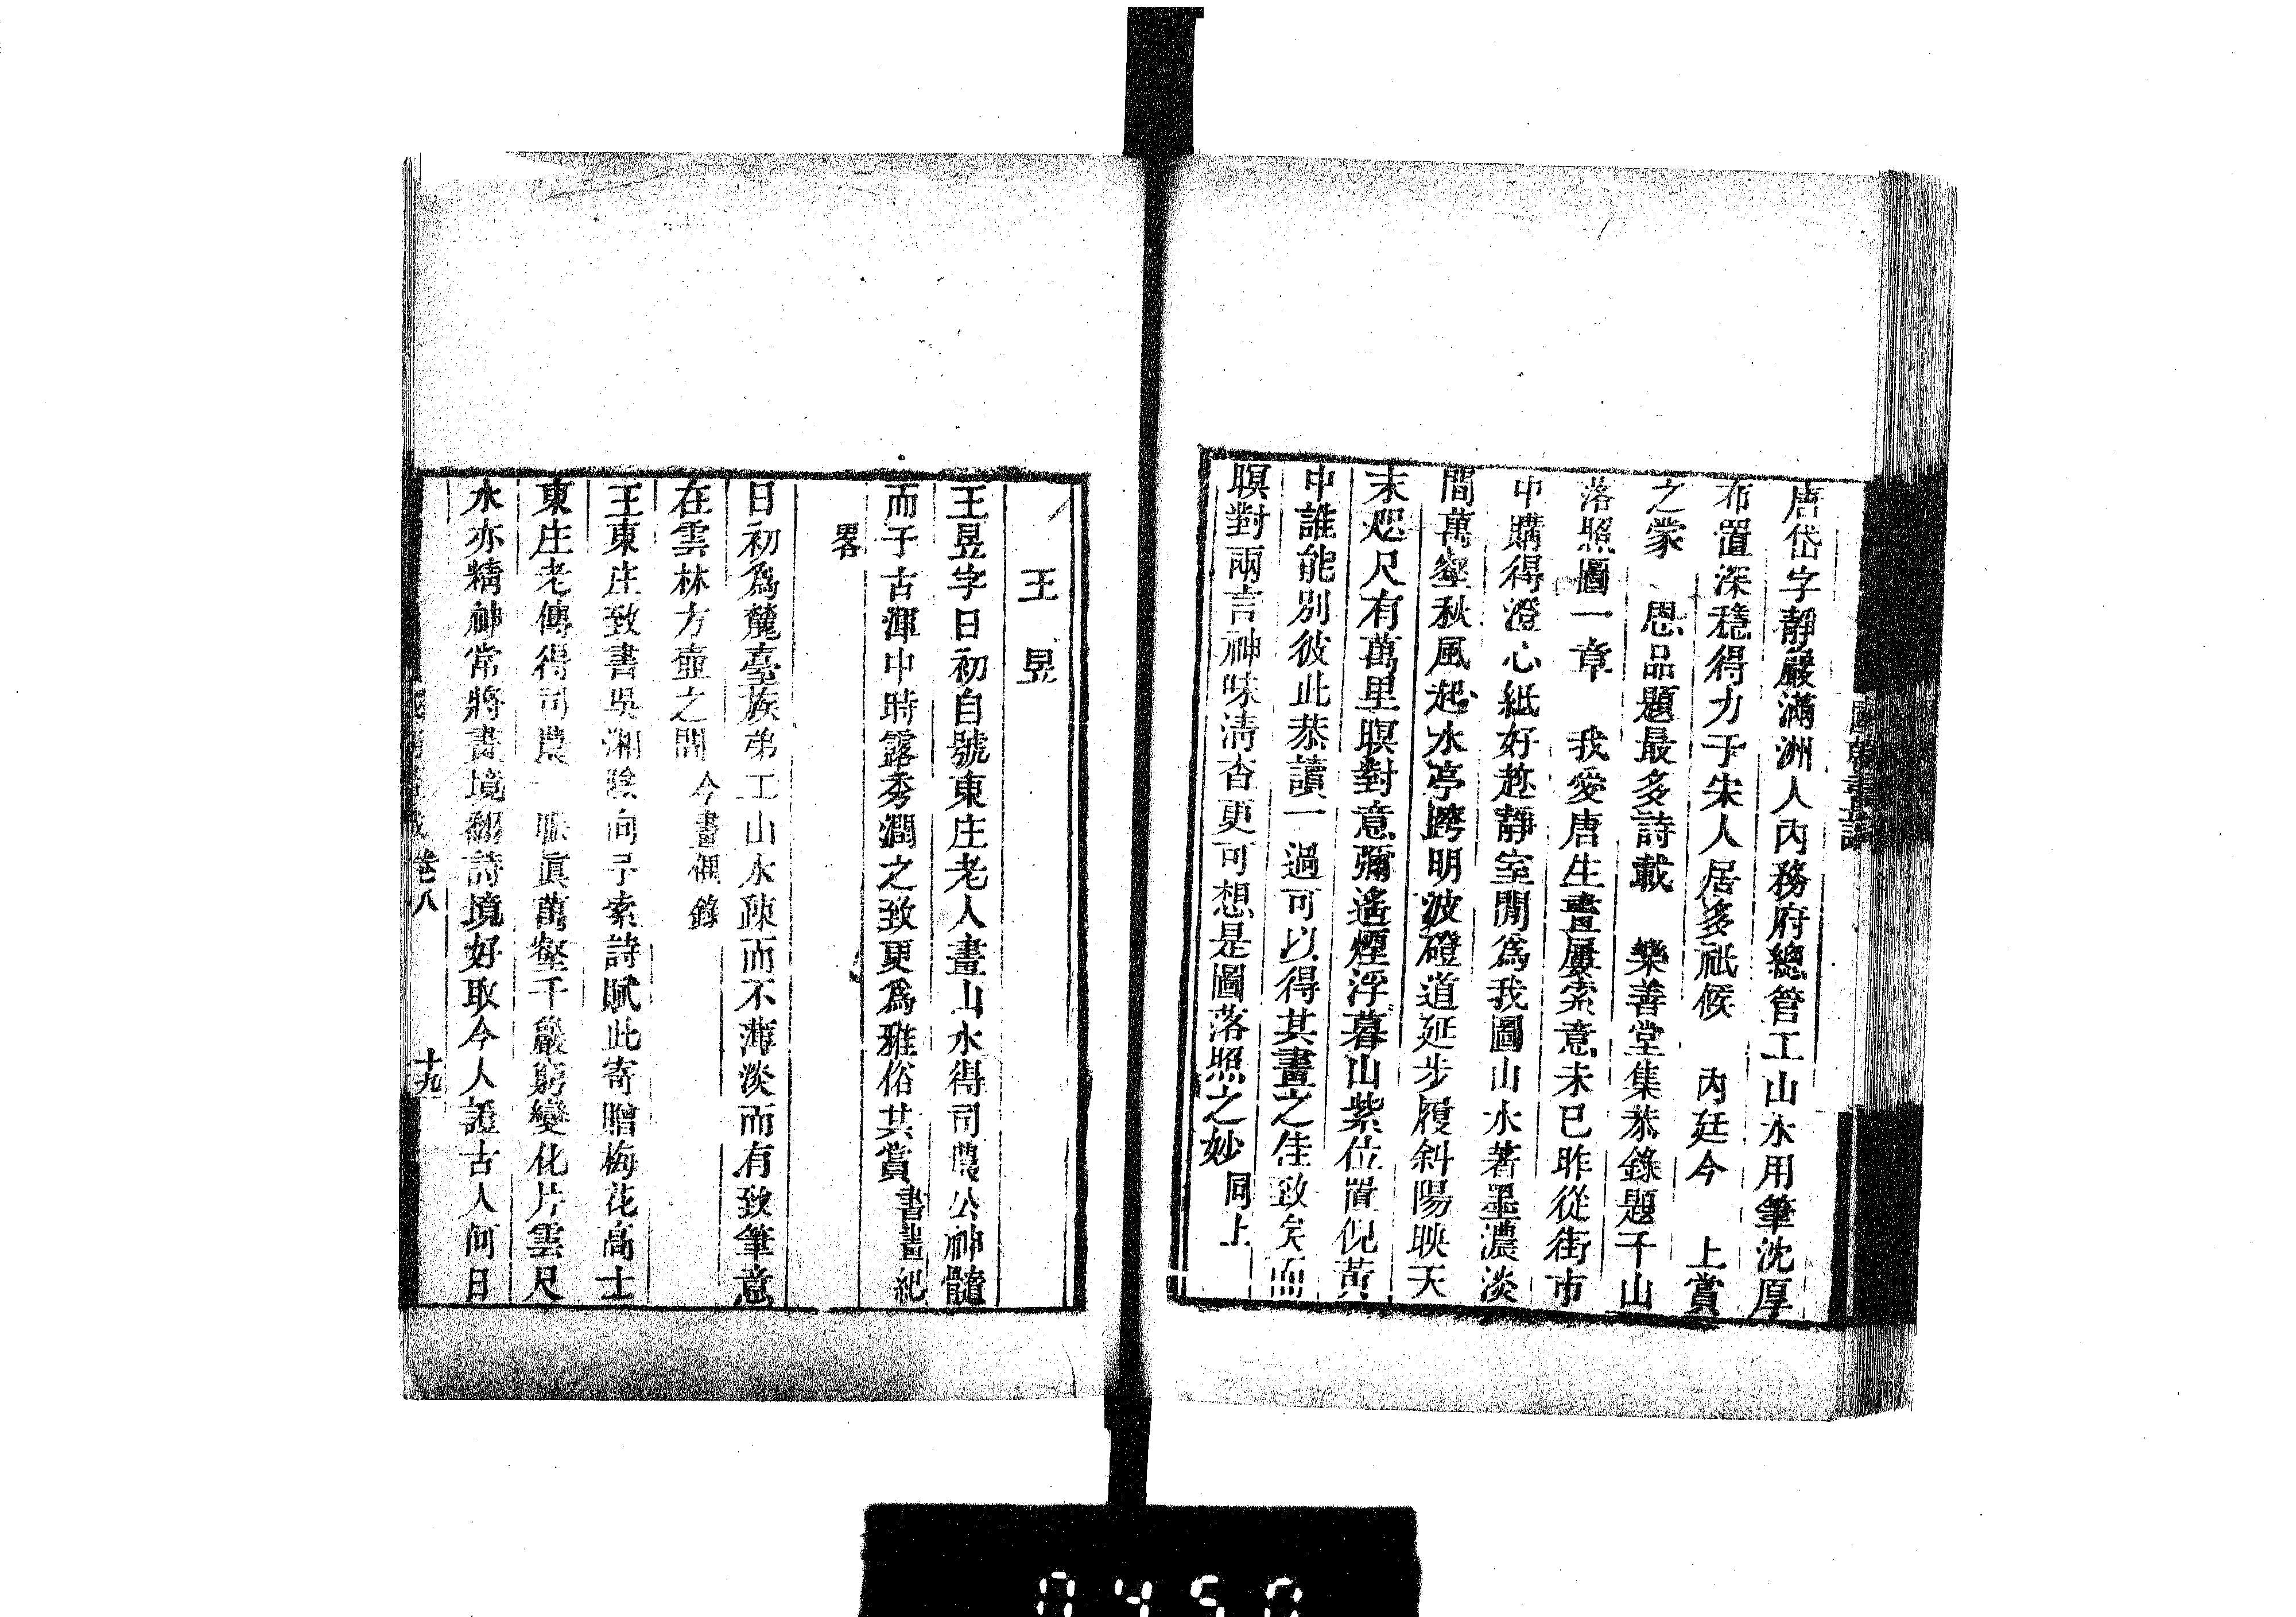 唐岱字靜巖滿洲人內務府總管工山水用筆沈厚
布置深穩得力于宋人居多祇候　內廷今　上賞
之蒙　恩品題最多詩載　樂善堂集恭錄題千山
落照圖一章　我愛唐生畫屢索意未已昨從街市
中購得澄心紙好趂靜室閒爲我圖山水著墨濃淡
間萬壑秋風起水亭跨明波磴道延步履斜陽映天
末咫尺有萬里暝對意彌遙煙浮暮山紫位置倪黃
中誰能別彼此恭讀一過可以得其畫之佳致矣而
暝對兩言神味清杳更可想是圖落照之妙 同上
王昱
王昱字日初自號東庄老人畫山水得司農公神髓
而于古渾中時露秀潤之致更爲雅俗共賞 書畫紀
畧
日初爲麓臺族弟工山水疎而不薄淡而有致筆意
在雲林方壺之間 今畫裡錄
王東庄致書吳湘陰向予索詩賦此寄贈梅花高士
東庄老傳得司農一脈眞萬壑千巖窮變化片雲尺
水亦精神常將畫境翻詩境好取今人證古人何日
卷八
十九
0450